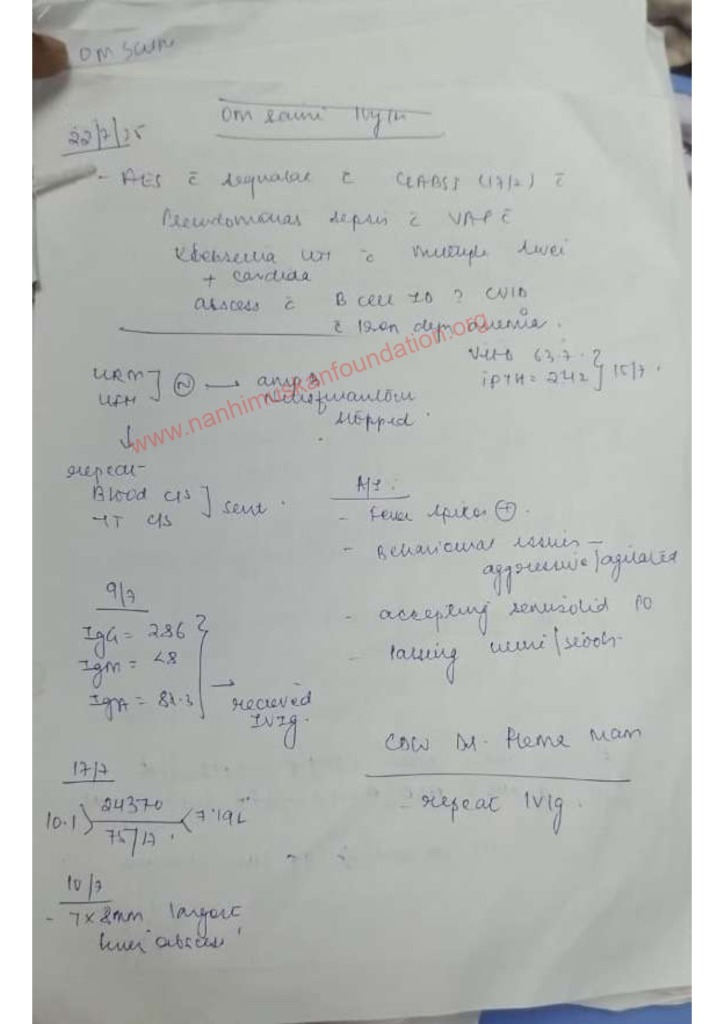 OM Saini
Om Saini 10y/M
22/7/25
- AES c̄ sequalae c̄ CLABSI (17/7) c̄
Pseudomonas sepsis c̄ VAP c̄
Klebsiella UTI c̄ multiple liver
+ candida
abscess c̄ B cell ID ? CVID
c̄ Iron defn anemia.
www.nanhimuskanfoundation.org
Vit D 63.7
iPTH = 242 } 15/7.
URM
UFM ] (N) → amp B
Nitrofurantoin
stopped.
↓
repeat-
Blood C/S
ET C/S ] sent.
A/I :
- Fever spikes (+).
- Behavioural issues -
aggressive/agitated
- accepting semisolid PO
- Passing urine/stools-
9/7
IgG = 286
IgM = <8
IgA = 81.3
→ recieved
IVIg.
17/7
10.1 > 24370 < 7.19L
75/17.
CDW Dr. Prerna Mam
- repeat IVIg.
10/7
- 7x8mm largest
liver abscess